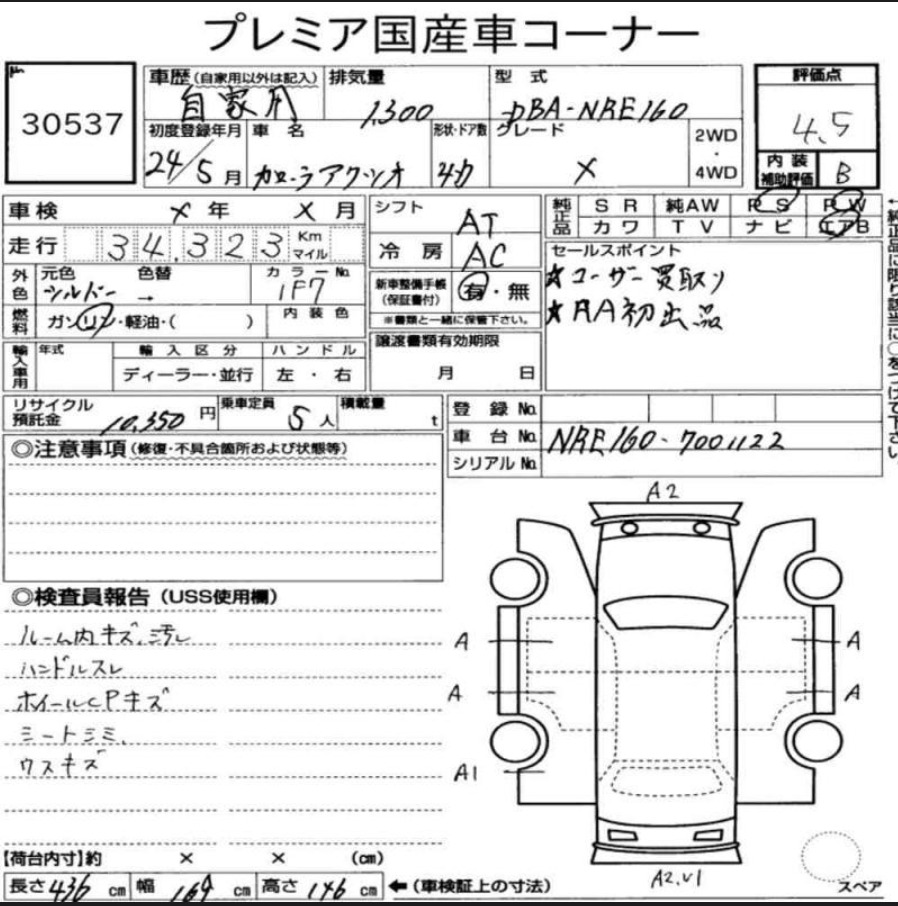 プレミア国産車コーナー
30537
車歴(自家用以外は記入)
自家用
排気量
1,300
型式
DBA-NRE160
評価点
4.5
初度登録年月
24/5月
車名
カローラアクシオ
形状・ドア数
4D
グレード
X
2WD
・
4WD
内装
補助評価
B
車検 X年 X月
シフト
AT
純正品
SR 純AW PS PW
カワ TV ナビ エアB
走行 34,323 Km
マイル
冷房
AC
セールスポイント
★ユーザー買取り
★AA初出品
外色
元色
シルバー
色替
→
カラーNo.
1F7
新車整備手帳
(保証書付)
有・無
※書類と一緒に保管下さい。
燃料
ガソリン・軽油・( )
内装色
譲渡書類有効期限
月 日
輸入車用
年式
輸入区分
ディーラー・並行
ハンドル
左・右
リサイクル
預託金
10,350円
乗車定員
5人
積載量
t
登録No.
車台No.
NRE160-7001122
シリアルNo.
←純正品に限り該当に○をつけて下さい。
◎注意事項(修復・不具合箇所および状態等)
◎検査員報告(USS使用欄)
ルーム内キズ、汚レ
ハンドルスレ
ホイールCPキズ
シートシミ、
ウスキズ
A2
A
A
A
A
A1
A2.U1
スペア
【荷台内寸】約 × × (cm)
長さ436cm 幅169cm 高さ146cm ←(車検証上の寸法)